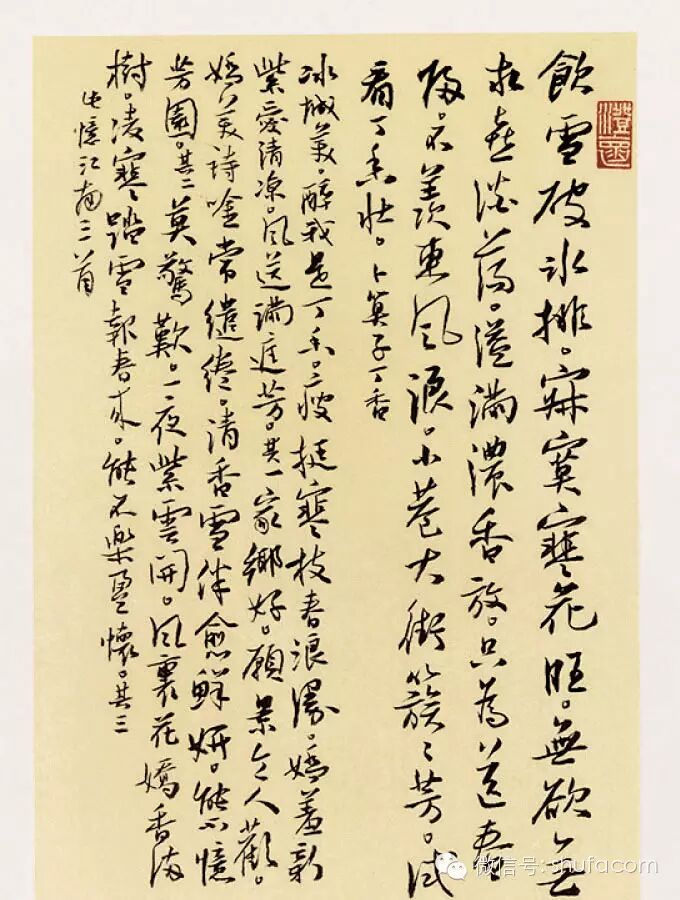 飲雪破冰排。寂寞寒花旺。無欲無
求蕩。溢滿濃香放。只為送春
歸。不羨東風浪。小巷大街簇〻芳。試
看丁香壯。卜算子丁香
冰城美。醉我是丁香。瘦挺寒枝春浪漫。嬌羞新
紫愛清涼。風送滿庭芳。其一家鄉好。願景令人歡。
嬌美詩吟常繾綣。清香雪伴愈鮮妍。能不憶
芳園。其二莫驚歎。一夜紫雲開。風裏花嬌香滿
樹。凌寒踏雪報春來。能不樂盈懷。其三
憶江南三首
微信号: shufacom